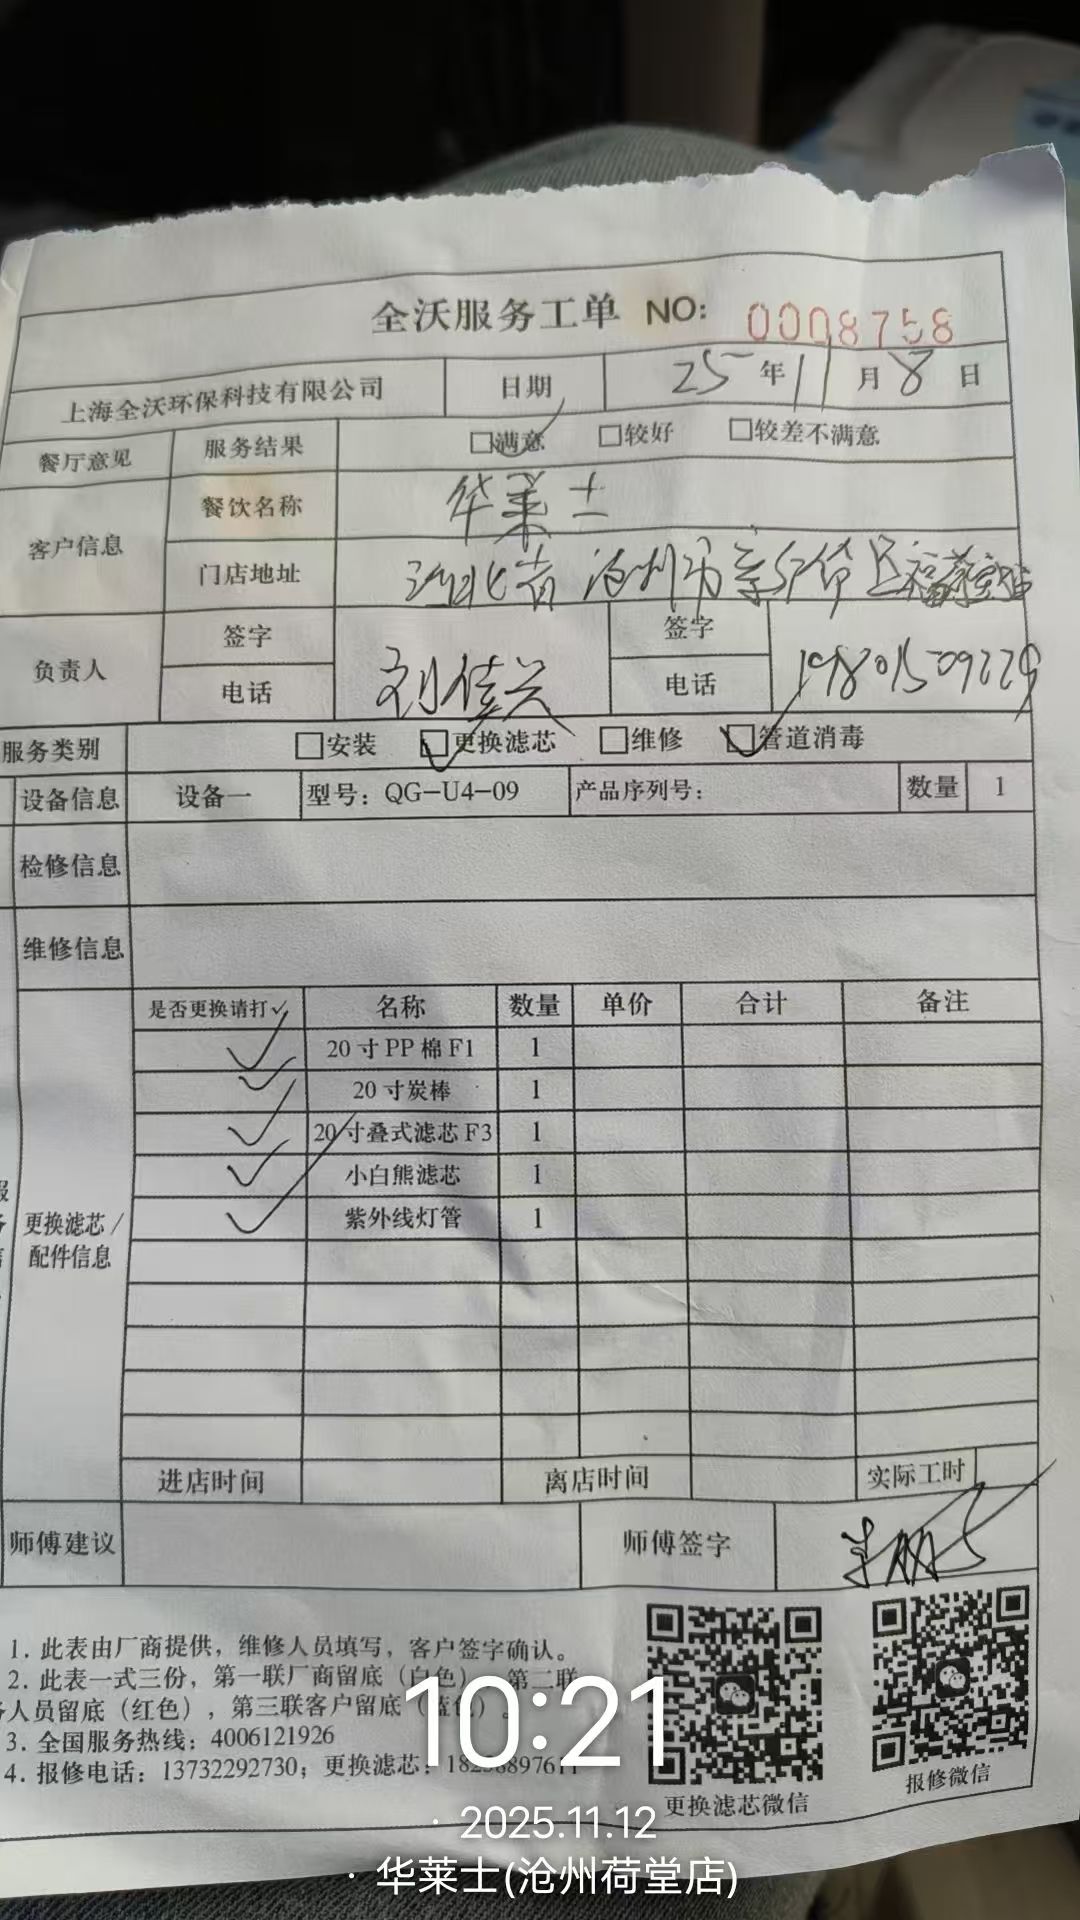 全沃服务工单 NO: 0008758
上海全沃环保科技有限公司 日期 25年11月8日
餐厅意见 服务结果 □满意 □较好 □较差不满意
客户信息 餐饮名称 华莱士
门店地址 河北省沧州市新华区
负责人 签字 刘佳兴 签字
电话 电话 19801509229
服务类别 □安装 □更换滤芯 □维修 □管道消毒
设备信息 设备一 型号：QG-U4-09 产品序列号： 数量 1
检修信息
维修信息
是否更换请打✓ 名称 数量 单价 合计 备注
✓ 20寸PP棉F1 1
✓ 20寸炭棒 1
✓ 20寸叠式滤芯F3 1
✓ 小白熊滤芯 1
✓ 紫外线灯管 1
更换滤芯/
配件信息
进店时间 离店时间 实际工时
师傅建议 师傅签字
1. 此表由厂商提供，维修人员填写，客户签字确认。
2. 此表一式三份，第一联厂商留底（白色），第二联
人员留底（红色），第三联客户留底（蓝色）。
3. 全国服务热线：4006121926
4. 报修电话：13732292730；更换滤芯：
更换滤芯微信
报修微信
10:21
· 2025.11.12
· 华莱士(沧州荷堂店)